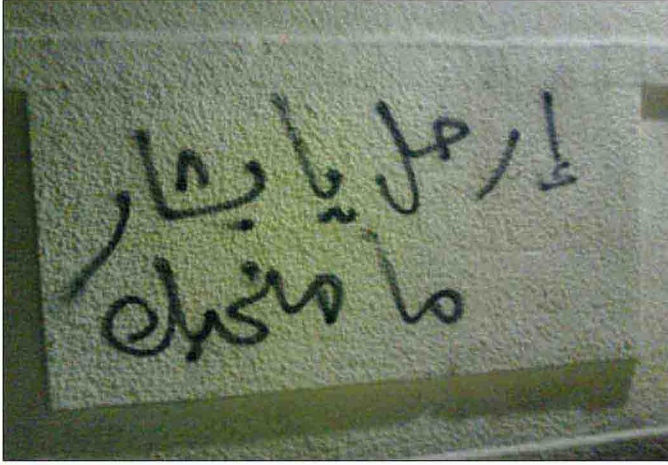 إرحل يا بشار
ما منحبك